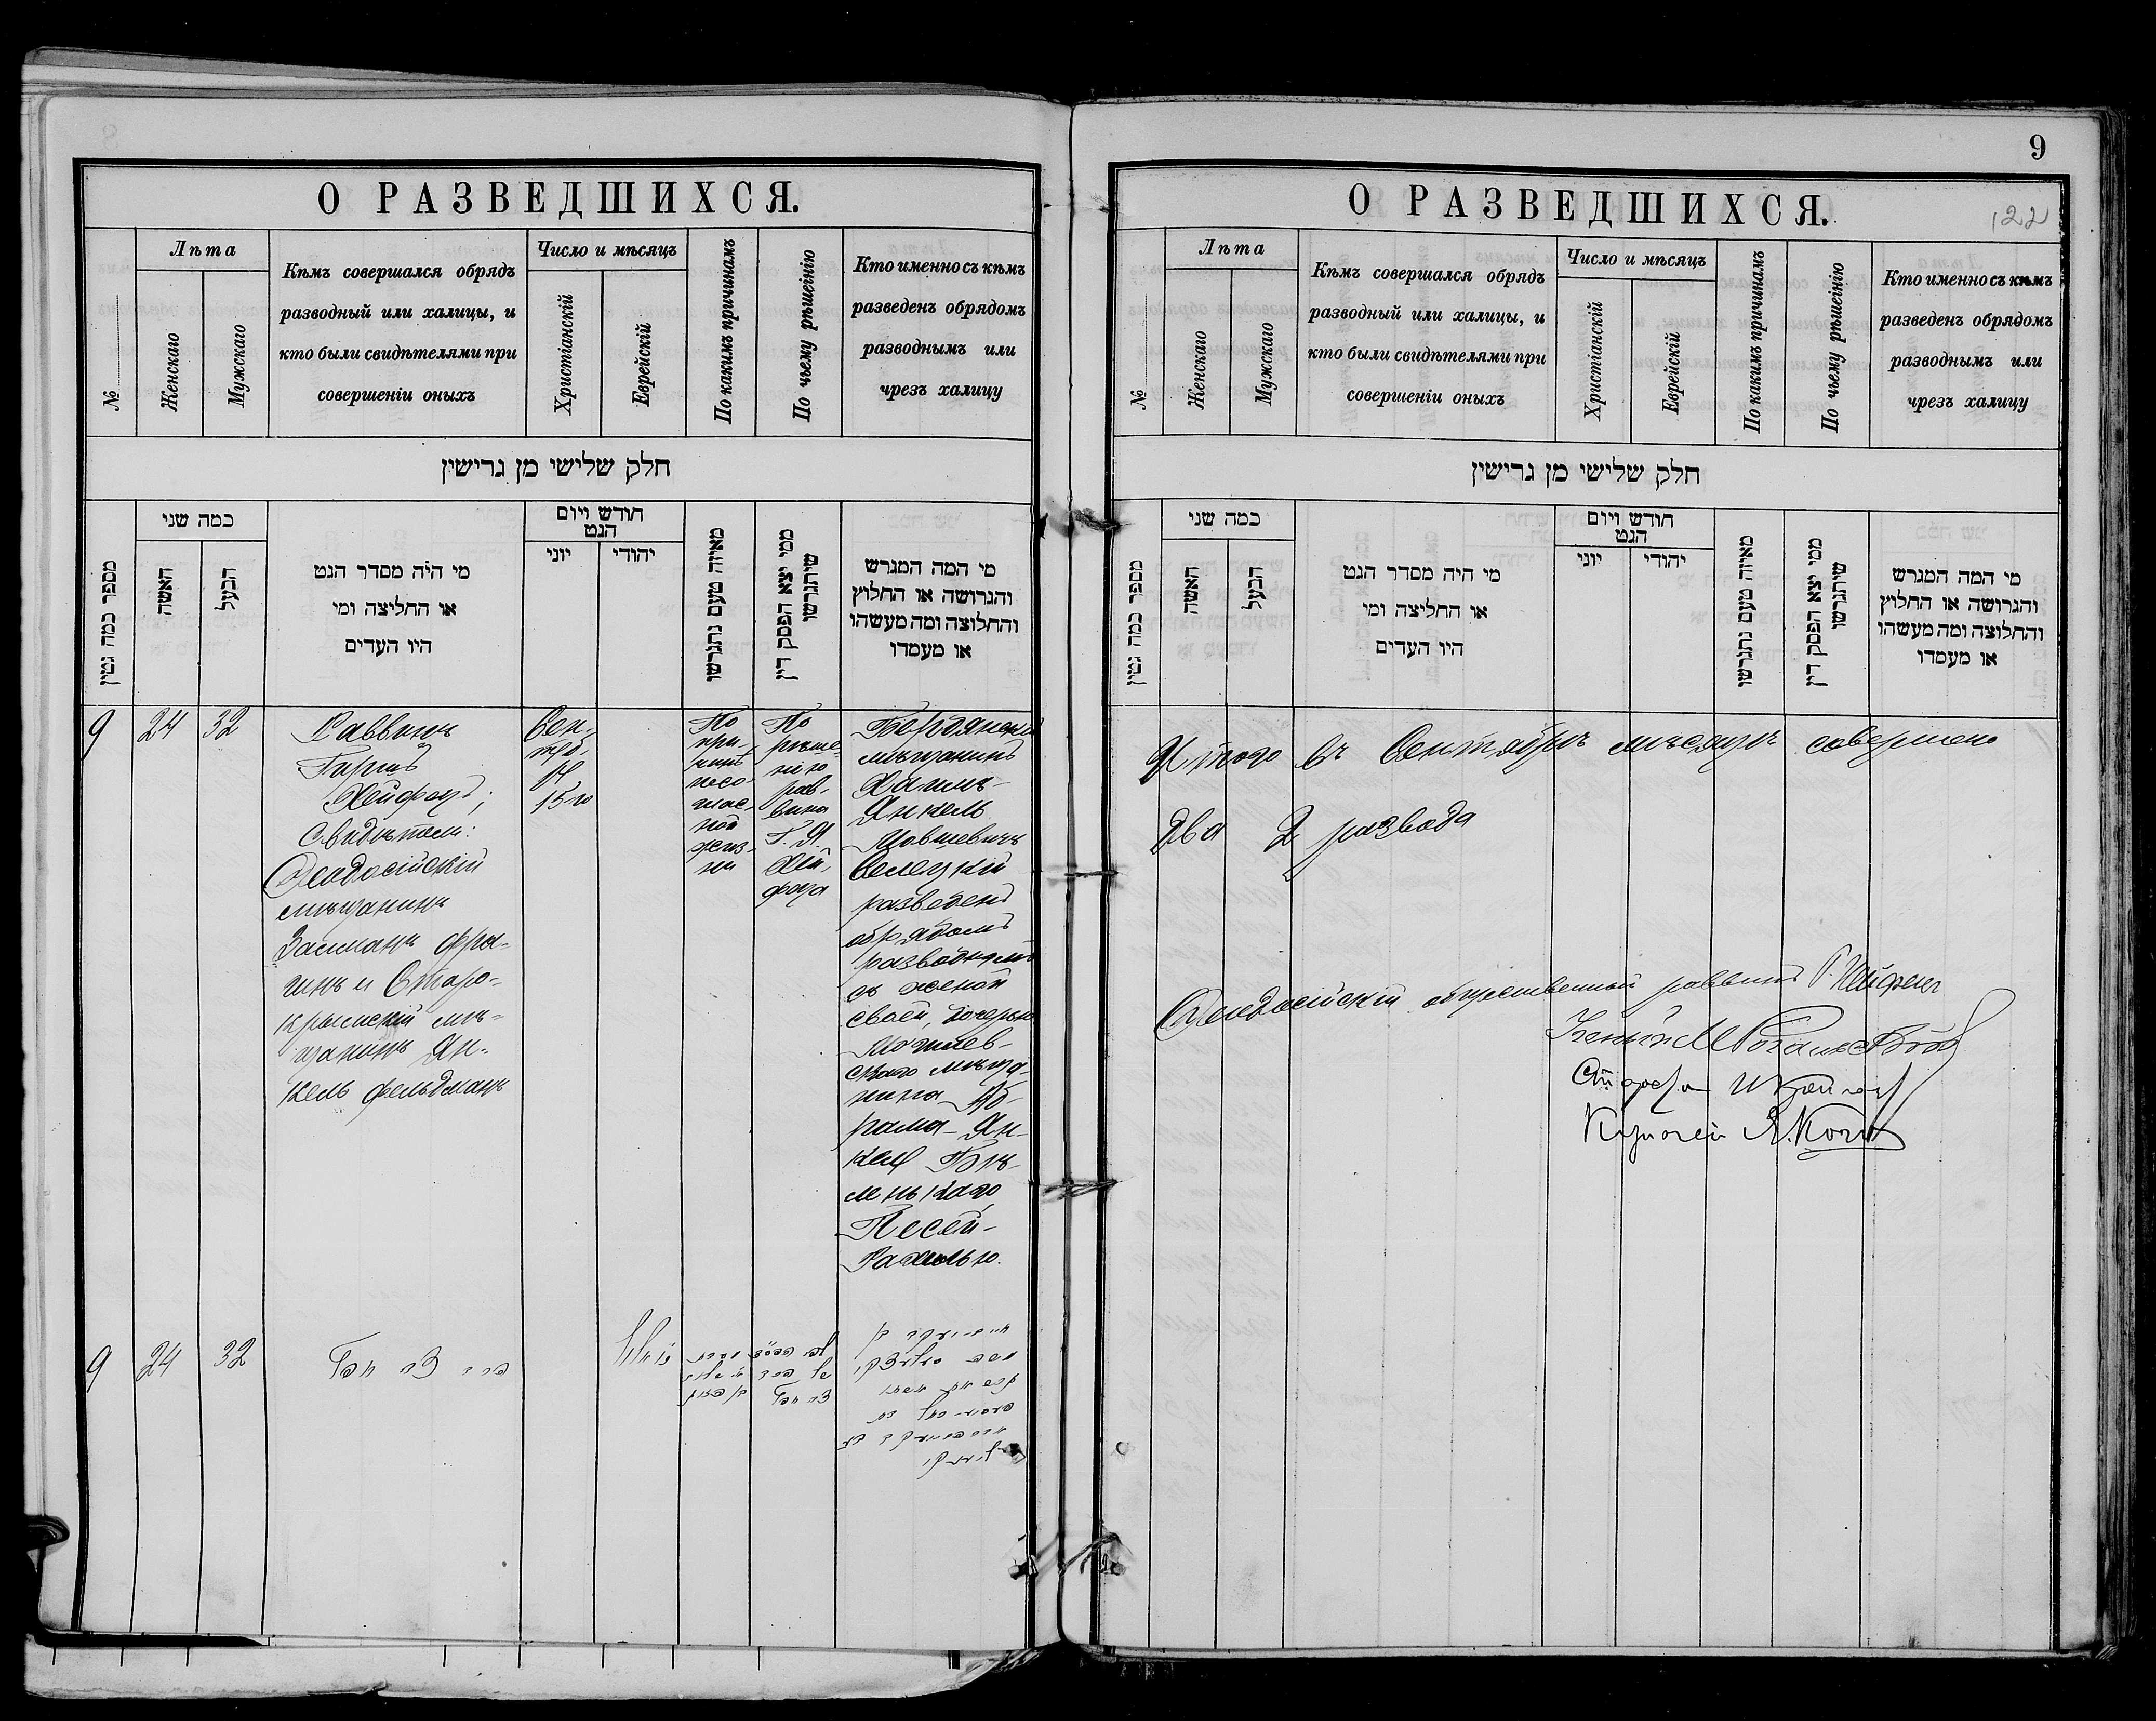 О РАЗВЕДШИХСЯ.
№
Лѣта
Женскаго
Мужскаго
Кѣмъ совершался обрядъ
разводный или халицы, и
кто были свидѣтелями при
совершеніи оныхъ
Число и мѣсяцъ
Христіанскій
Еврейскій
По какимъ причинамъ
По чьему рѣшенію
Кто именно съ кѣмъ
разведенъ обрядомъ
разводнымъ или
чрезъ халицу
חלק שלישי מן גרישין
מספר כמה גטין
כמה שני
האשה
הבעל
מי היה מסדר הגט
או החליצה ומי
היו העדים
חודש ויום
הגט
יוני
יהודי
מאיזה טעם נתגרשו
ממי יצא הפסק דין
שיתגרשו
מי המה המגרש
והגרושה או החלוץ
והחלוצה ומה מעשהו
או מעמדו
9
24
32
Раввинъ
Гиршъ
Хейфецъ;
Свидѣтели:
Ѳеодосійскій
мѣщанинъ
Залманъ Фра-
гинъ и Старо-
крымскій мѣ-
щанинъ Ян-
кель Фельдманъ
Сен-
тяб.
15го
По
при-
чинѣ
несо-
глас-
ной
жиз-
ни
По
рѣше-
нію
рав-
вина
Г. Я.
Хей-
феца
Бердянскій
мѣщанинъ
Хаимъ-
Янкель
Мовшевичъ
Селецкій
разведенъ
обрядомъ
разводнымъ
съ женой
своей, дочерью
Могилев-
скаго мѣща-
нина Аб-
рама-Ян-
келя
Песей-
Рахилью.
9
24
32
9
О РАЗВЕДШИХСЯ.
122
№
Лѣта
Женскаго
Мужскаго
Кѣмъ совершался обрядъ
разводный или халицы, и
кто были свидѣтелями при
совершеніи оныхъ
Число и мѣсяцъ
Христіанскій
Еврейскій
По какимъ причинамъ
По чьему рѣшенію
Кто именно съ кѣмъ
разведенъ обрядомъ
разводнымъ или
чрезъ халицу
חלק שלישי מן גרישין
מספר כמה גטין
כמה שני
האשה
הבעל
מי היה מסדר הגט
או החליצה ומי
היו העדים
חודש ויום
הגט
יוני
יהודי
מאיזה טעם נתגרשו
ממי יצא הפסק דין
שיתגרשו
מי המה המגרש
והגרושה או החלוץ
והחלוצה ומה מעשהו
או מעמדו
Итого въ Сентябрѣ мѣсяцѣ совершено
два 2 развода
Ѳеодосійскій общественный раввинъ Г. Хейфецъ